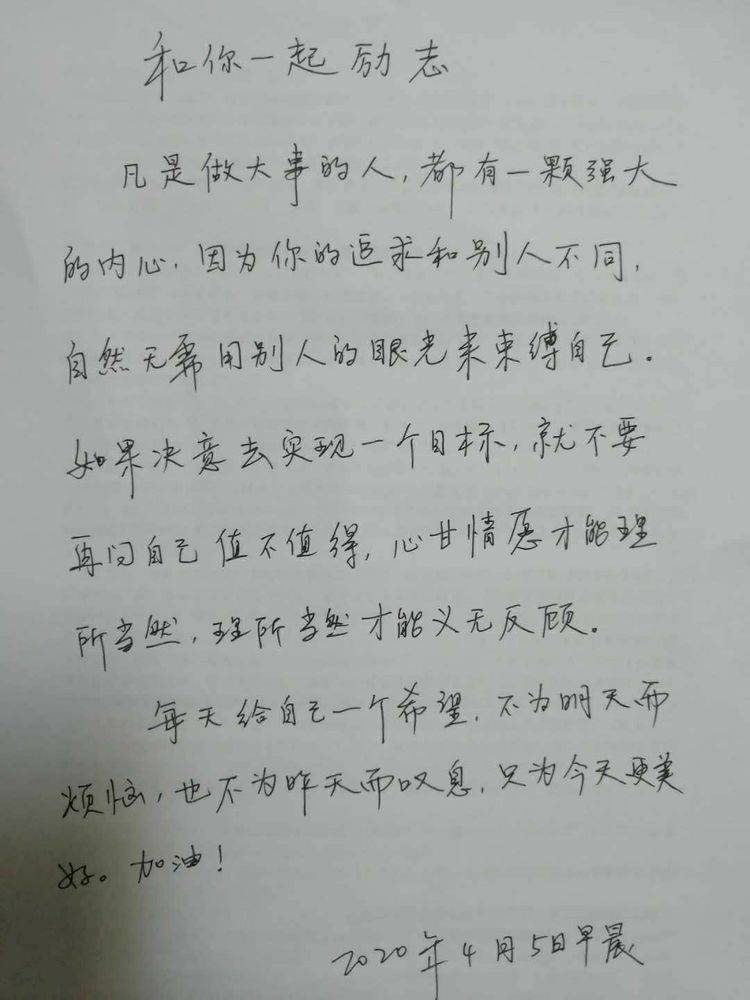 和你一起励志
凡是做大事的人,都有一颗强大
的内心,因为你的追求和别人不同,
自然无需用别人的眼光来束缚自己。
如果决意去实现一个目标,就不要
再问自己值不值得,心甘情愿才能理
所当然,理所当然才能义无反顾。
每天给自己一个希望,不为明天而
烦恼,也不为昨天而叹息,只为今天更美
好。加油!
2020年4月5日早晨